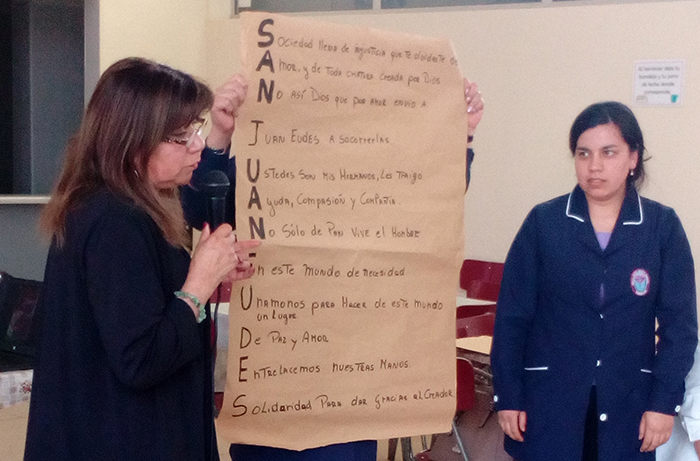 Sociedad llena de injusticia que te olvidaste de
Amor, y de toda criatura creada por Dios
No así Dios que por amor envio a
Juan Eudes a socorrerlas
Ustedes son mis Hermanos, les traigo
Ayuda, Compasión y Compañia
No Sólo de Pan Vive el Hombre
En este mundo de necesidad
Unamonos para Hacer de este mundo
un Lugar
De Paz y Amor
Entrelacemos nuestras manos
Solidaridad Para dar gracias al Creador